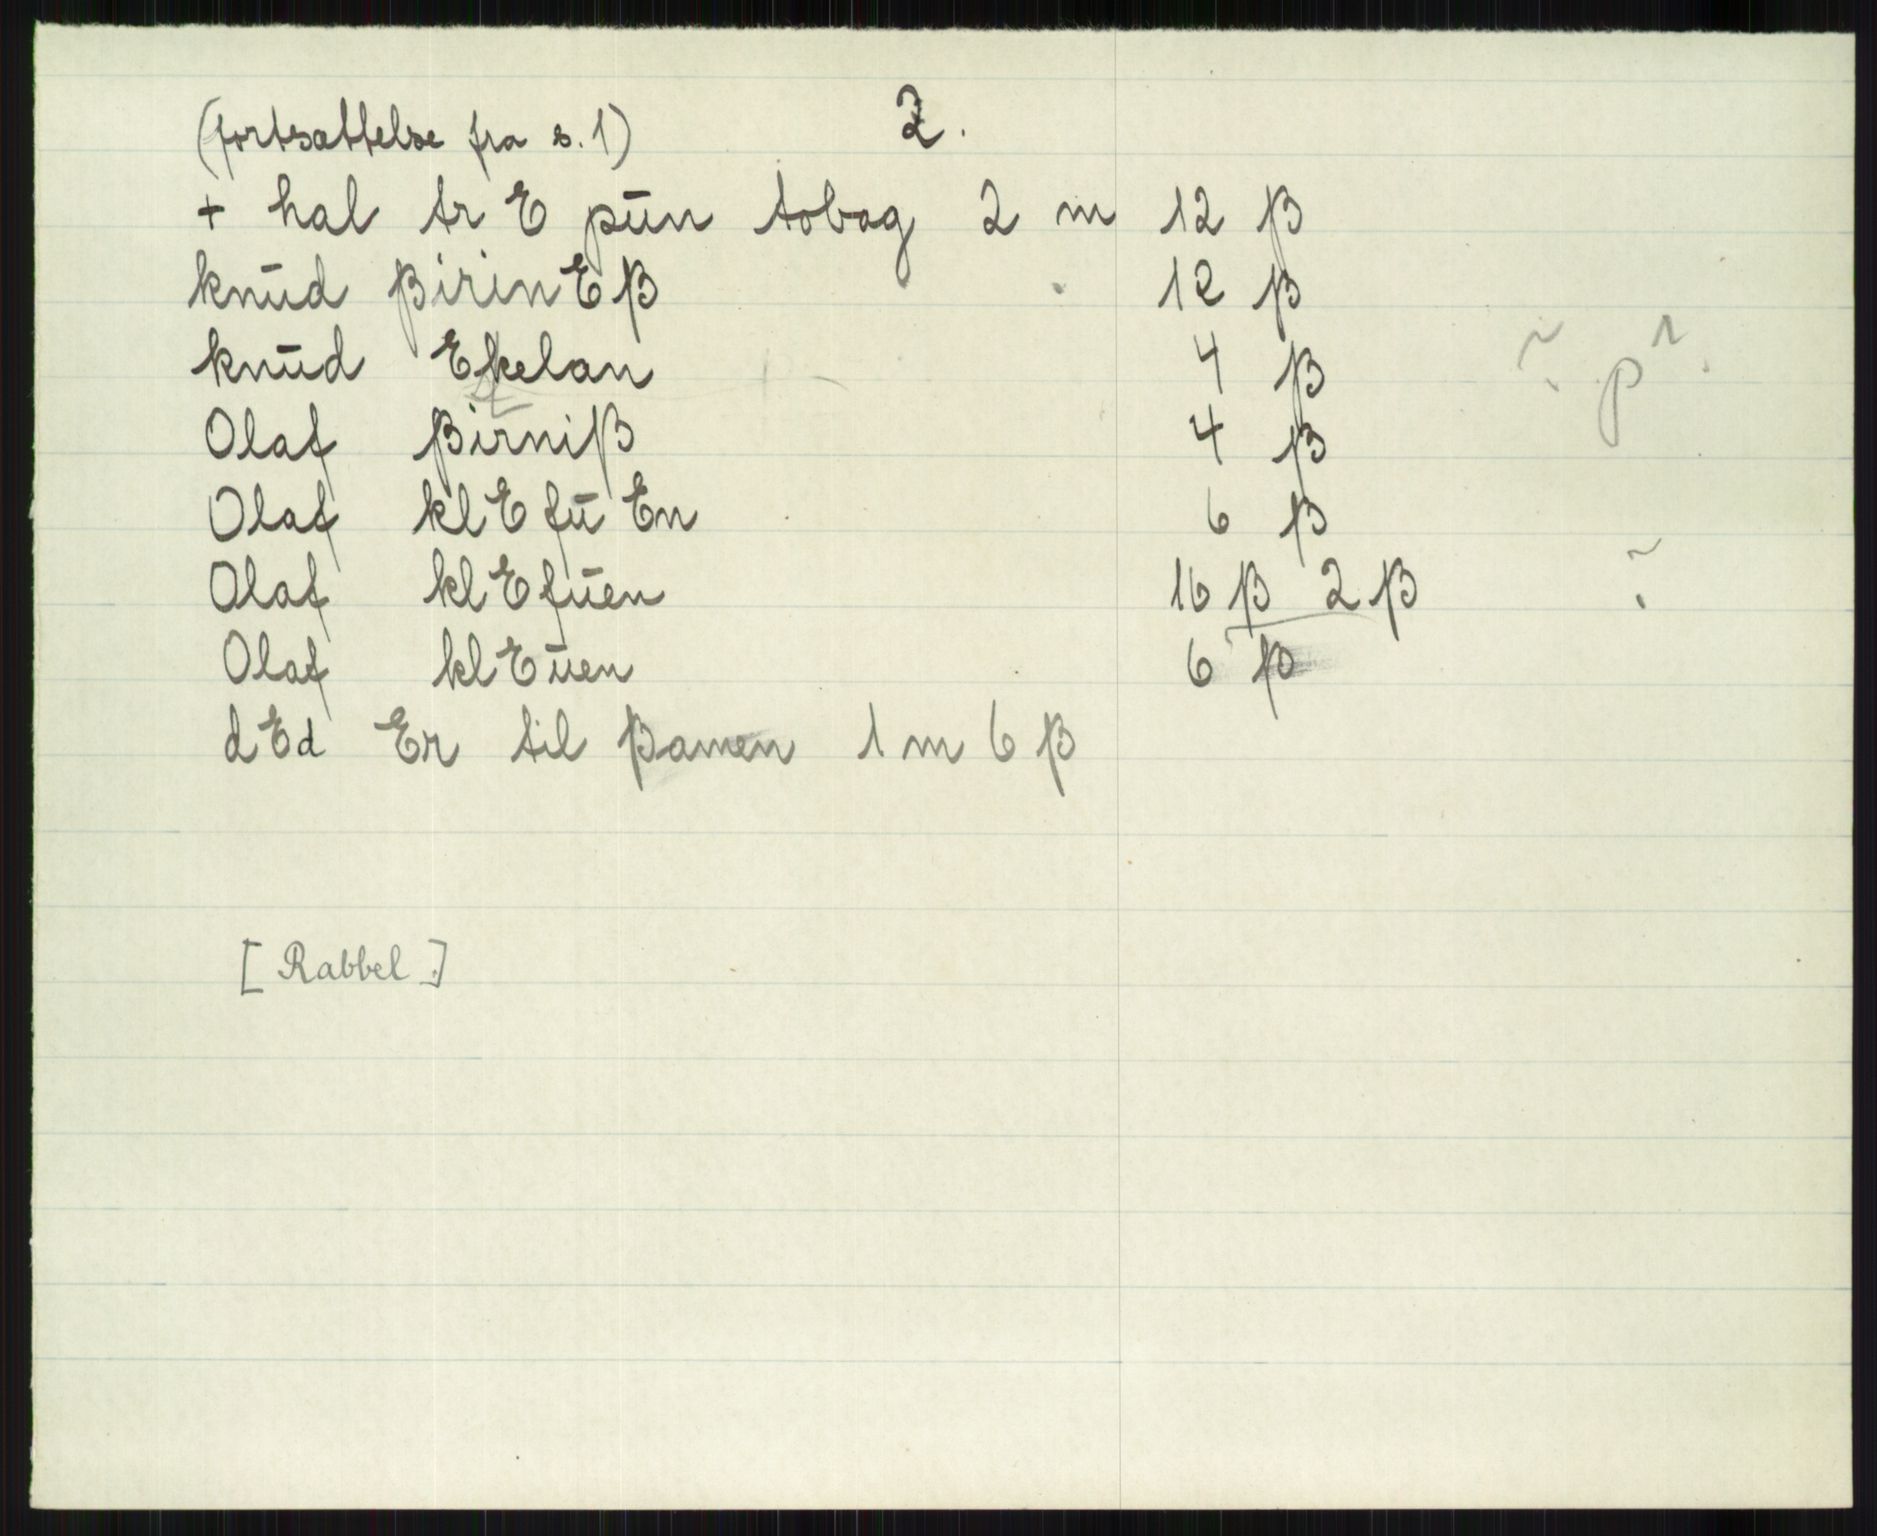 (fortsættelse fra s. 1) 2.
+ hal tr E pūn tobag 2 m 12 ß
knūd ßirinEß 12 ß
knūd Ekelan 4 ß
Olaf ßirniß 4 ß
Olaf klE fū En 6 ß
Olaf klEfūen 16 ß 2 ß
Olaf klEūen 6 ß
dEd Er til ßamen 1 m 6 ß
[Rabbel.]